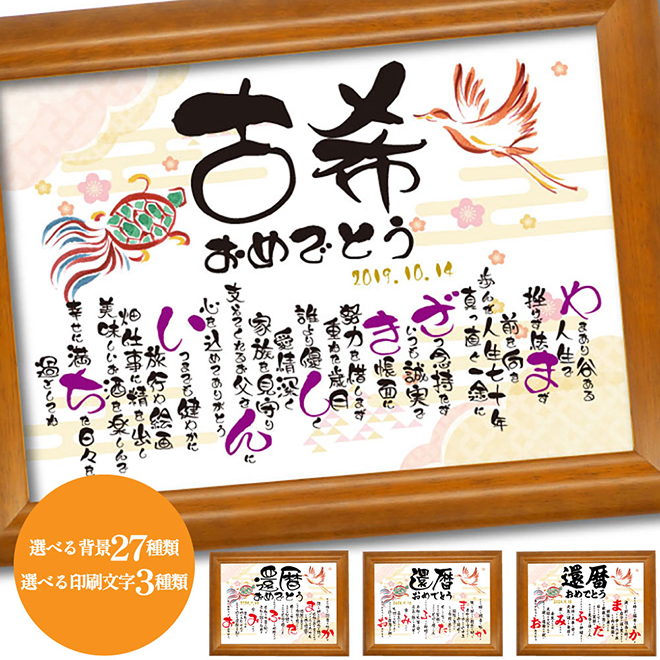 古希
おめでとう
2019.10.14
やまあり谷ある
人生を
挫けず休まず
前を向き
真っ直ぐ一途に
歩んだ人生七十年
ざつ念持たず
いつも誠実で
き帳面に
努力を惜しまず
重ねた歳月
誰より優しく
愛情深く
家族を見守り
支えてくれるお父さんに
心を込めてありがとう
いつまでも健やかに
旅行や絵画
畑仕事に精を出し
美味しいお酒を楽しんで
幸せに満ちた日々を
過ごしてね
選べる背景27種類
選べる印刷文字3種類
還暦
おめでとう
還暦
おめでとう
還暦
おめでとう